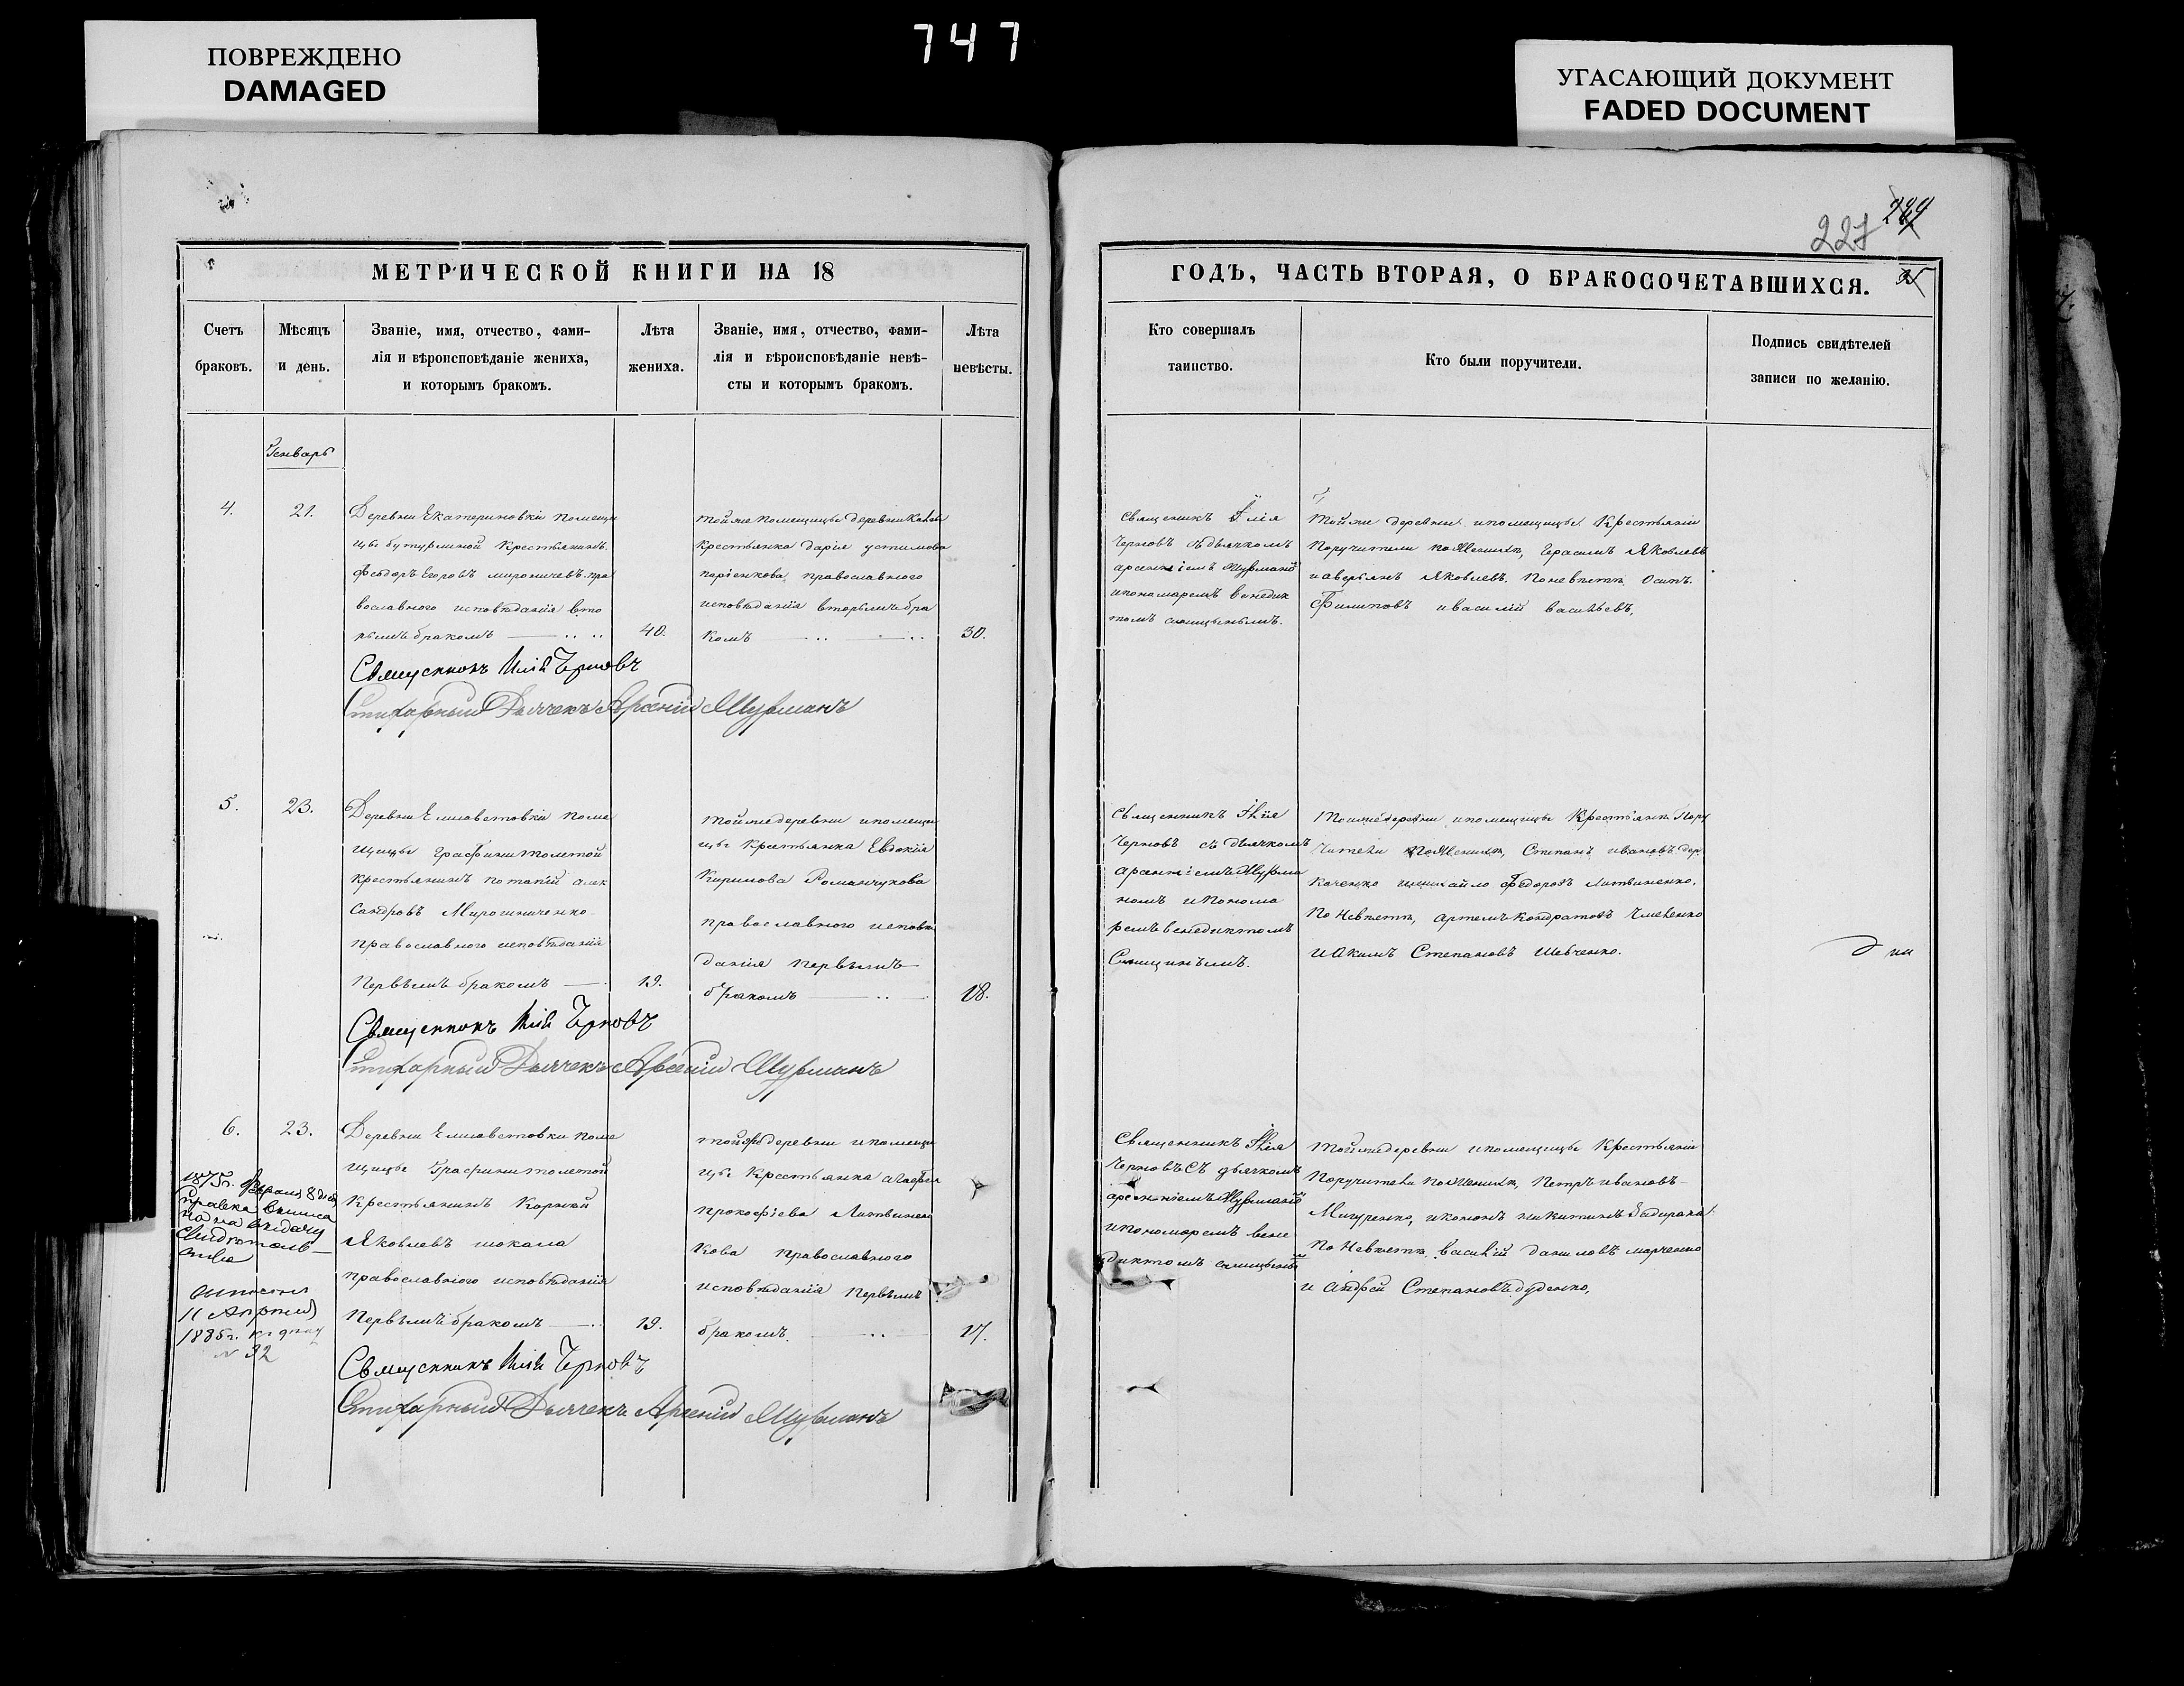 ПОВРЕЖДЕНО
DAMAGED
747
УГАСАЮЩИЙ ДОКУМЕНТ
FADED DOCUMENT
227
МЕТРИЧЕСКОЙ КНИГИ НА 18
ГОДЪ, ЧАСТЬ ВТОРАЯ, О БРАКОСОЧЕТАВШИХСЯ.
Счетъ
браковъ.
Мѣсяцъ
и день.
Званіе, имя, отчество, фами-
лія и вѣроисповѣданіе жениха,
и которымъ бракомъ.
Лѣта
жениха.
Званіе, имя, отчество, фами-
лія и вѣроисповѣданіе невѣ-
сты и которымъ бракомъ.
Лѣта
невѣсты.
Кто совершалъ
таинство.
Кто были поручители.
Подпись свидѣтелей
записи по желанію.
Генварь
4.
21.
Деревни Екатериновки помещи
цы бутурлиной Крестьянинъ
Феодоръ Егоровъ мироничевъ пра
вославнаго исповѣданія вто
рымъ бракомъ
40.
тойже помещицы деревни
Крестьянка дарія устимова
православнаго
исповѣданія вторымъ бра
комъ
30.
Священикъ Илія
Черновъ съ дьячкомъ
арсеніемъ Мурмано
ипономаремъ венедик
томъ
тойже деревни ипомещицы Крестьяни
Поручители по женихѣ, Герасимъ Яковлевъ
иаверьянъ Яковлевъ. По невѣстѣ Осипъ
Филиповъ ивасилій васильевъ,
Священникъ Илія Черновъ
Стихарный Дьячекъ Арсеній Мурманъ
5.
23.
Деревни Елисаветовки поме
щицы Графини толстой
крестьянинъ потапій алек
сандровъ Мирошниченко
православнаго исповѣданія
Первымъ бракомъ
19.
тойже деревни ипомещи
цы Крестьянка Евдокія
Кирилова Романчукова
православнаго исповѣ
данія первымъ
бракомъ
18.
Священникъ Илія
Черновъ съ дьячкомъ
арсеніемъ Мурма
номъ ипонома
ремъ венедиктомъ
Тойже деревни ипомещицы Крестьяни Пору
чители по женихѣ, Степанъ ивановъ дер
каченко имихайло Федоровъ литвиненко,
По Невѣстѣ, артемъ Кондратовъ
иакимъ Степановъ Шевченко.
Священникъ Илія Черновъ
Стихарный Дьячекъ Арсеній Мурманъ
6.
23.
Деревни Елисаветовки поме
щицы Графини толстой
Крестьянинъ Корней
Яковлевъ шокала
православнаго исповѣданія
Первымъ бракомъ
19.
тойже деревни ипомещи
цы Крестьянка агафія
прокофіева Литвинен
кова православнаго
исповѣданія первымъ
бракомъ
17.
Священникъ Илія
Черновъ съ дьячкомъ
арсеніемъ Мурмано
ипономаремъ вене
диктомъ
тойже деревни ипомещицы Крестьяни
Поручители по женихѣ, Петръ ивановъ
По Невѣстѣ василій даниловъ марченко
и андрей Степановъ дуденко,
1875г. Февраля 8 дня
на выдачу
11 Апреля
1885г.
№ 32
Священникъ Илія Черновъ
Стихарный Дьячекъ Арсеній Мурманъ